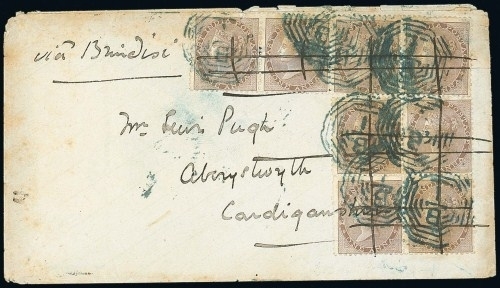 via Brindisi
Mr Lewis Pugh
Aberystwyth
Cardiganshire